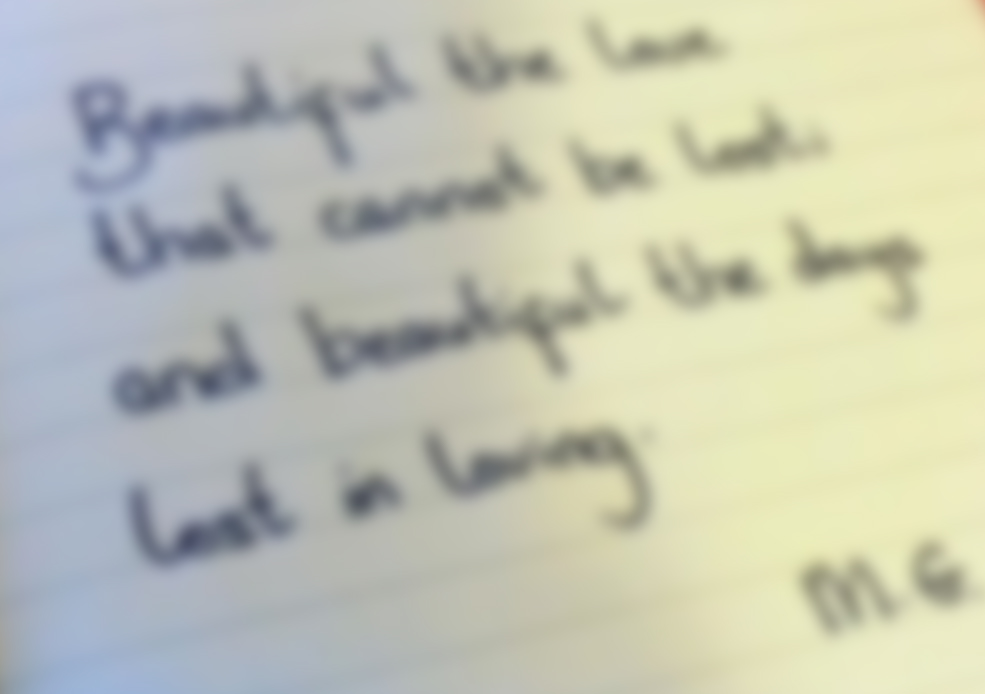 Beautiful the love
that cannot be lost;
and beautiful the days
lost in loving.
M.G.